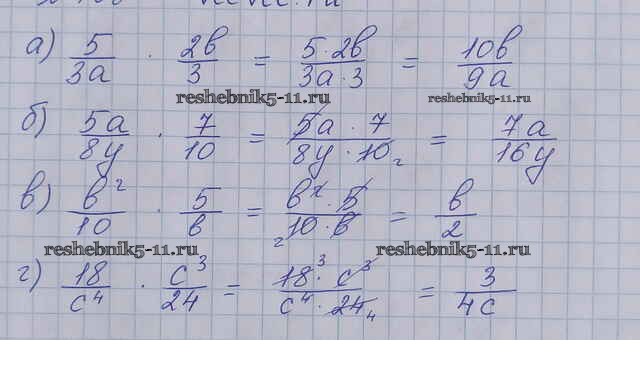 а) 5/3a · 2b/3 = 5·2b/3a·3 = 10b/9a
reshebnik5-11.ru reshebnik5-11.ru
б) 5a/8y · 7/10 = 5a·7/8y·10 2 = 7a/16y
в) b²/10 · 5/b = b²·5/2 10·b = b/2
reshebnik5-11.ru reshebnik5-11.ru
г) 18/c⁴ · c³/24 = 18 3·c³/c⁴·24 4 = 3/4c